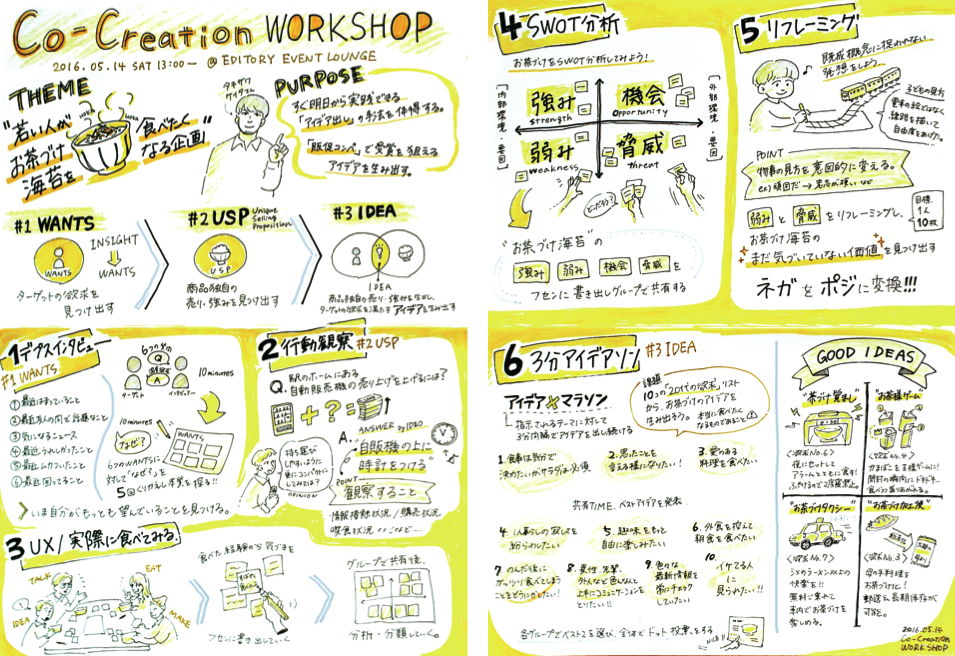 Co-Creation WORKSHOP
2016.05.14 SAT 13:00— @ EDITORY EVENT LOUNGE
THEME
"若い人が
お茶づけ
海苔を
食べたく
なる企画"
タキザワ
ケイタさん
PURPOSE
すぐ明日から実践できる
「アイデア出し」の手法を体得する。
「販促コンペ」で受賞を狙える
アイデアを生み出す。
#1 WANTS
WANTS
INSIGHT
WANTS
ターゲットの欲求を
見つけ出す
#2 USP Unique Selling Proposition
USP
商品独自の
売り・強みを見つけ出す
#3 IDEA
IDEA
商品独自の売り・強みを生かし、
ターゲットの欲求を満たすアイデアを生み出す
1 デプスインタビュー
#1 WANTS
6つの方
Q
A
ターゲット
インタビュアー
10 minutes
①最近はまっていること
②最近友人の間で話題なこと
③気になるニュース
④最近うれしかったこと
⑤最近ムカついたこと
⑥最近困ってること
10 minutes
なぜ?
WANTS
6つのWANTSに
対して「なぜ?」を
5回くりかえし本質を探る!!
いま自分がもっとも望んでいることを見つける。
2 行動観察 #2 USP
Q. 駅のホームにある
自動販売機の売り上げを上げるには?
+ ? =
ANSWER by IDEO
A. 自販機の上に
時計をつける
持ち運び
しやすいように
更にコンパクトに
してみれば?
OPINION
POINT
観察すること
情報接触状況 / 購売状況
喫食状況 などなど……
3 UX/実際に食べてみる。
TALK
EAT
IDEA
MAKE
食べた経験から気づきを
フセンに書き出していく
グループで共有後、
分析・分類していく。
4 SWOT分析
お茶づけをSWOT分析してみよう!
[内部環境・要因]
[外部環境・要因]
強み
strength
機会
opportunity
弱み
weakness
脅威
threat
どっだろう?
"お茶づけ海苔"の
強み 弱み 機会 脅威 を
フセンに書き出しグループで共有する
5 リフレーミング
既成概念に捉われない
発想をしよう
子どもの見方
電車の絵ではなく
線路を描いて
自由度をあげた。
POINT
物事の見方を意図的に変える。
ex)頑固だ→意志が強い など
弱み と 脅威 をリフレーミングし、
目標
1人
10枚
お茶づけ海苔の
まだ気づいていない価値を見つけ出す
ネガをポジに変換!!!
6 3分アイデアソン #3 IDEA
アイデア×マラソン
指示されるテーマに対して
3分内隔でアイデアを出し続ける
課題
10コの「20代の欲求」リスト
から、お茶づけのアイデアを
生み出そう。本当に食べたく
なるものであること
1. 食事は気分で
決めたいがサラダは必須
2. 思ったことを
言える様になりたい!
3. 愛のある
料理を食べたい
共有TIME、ベストアイデアを発表
4. 1人暮しの寂しさを
紛らわしたい
5. 趣味をもっと
自由に楽しみたい
6. 外食を控えて
朝食を食べたい
7. のんだ後に
ガッツリ食べてしまう
ことをどうにかしたい!
8. 異性、先輩、
外人など色んな人と
上手にコミュニケーションを
とりたい!!
9. 色々な
最新情報を
常にチェック
していたい
10. イケてる人
に
見られたい!!
各グループでベスト2を選び、全体でドット投票をする
GOOD IDEAS
"茶づけ覚まし"
<欲求 No.6>
夜にセットして
アラームとともに食す!
"お茶様ゲーム"
<欲求 No.4>
かまぼこを王様ゲームに!
"お茶づけタクシー"
<欲求 No.7>
シメのラーメン以上の
快楽を!!
無料で乗れて
車内でお茶づけを
楽しめる。
"お茶づけ加工機"
粉末化
<欲求 No.3>
母の手料理を
お茶づけに!
郵送&長期保存が
可能。
2016.05.14
Co-Creation
WORKSHOP